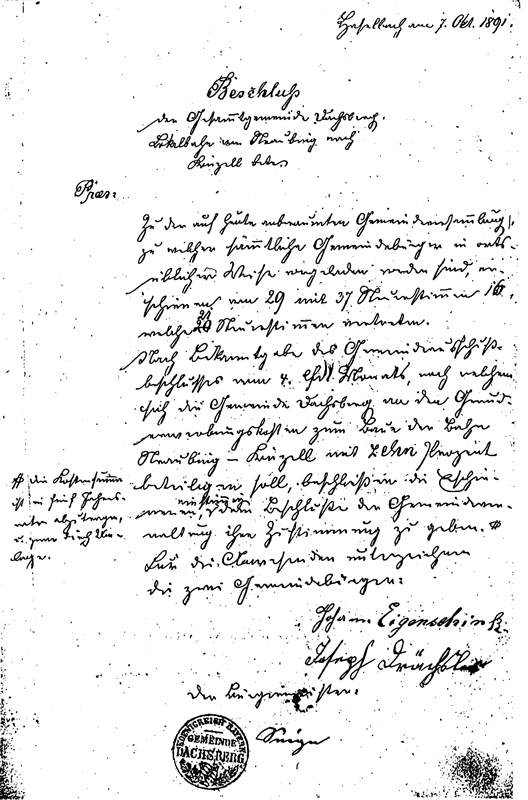 Haselbach am 7. Okt. 1891.
Beschluß
der Gesammtgemeinde Dachsberg.
Lokalbahn von Straubing nach
Konzell betr.
Präs:
Zu der auf heute anberaumten Gemeindeversammlung,
zu welcher sämmtliche Gemeindebürger in orts-
üblicher Weise vorgeladen worden sind, er-
schienen von 29 mit 37 Steuerstimmen 16,
welche 21 Steuerstimmen vertreten.
Nach Bekanntgabe des Gemeindeausschuß-
beschlusses vom 4. lfd. Monats, nach welchem
sich die Gemeinde Dachsberg an den Grund-
erwerbungskosten zum Baue der Bahn
Straubing – Konzell mit zehn Prozent
beteiligen soll, beschließen die Erschie-
nenen, einstimmig dem Beschluße der Gemeindever-
waltung ihre Zustimmung zu geben. #
# die Kostensumme
ist in fünf Jahres-
raten abzutragen,
u. zwar durch Um-
lage.
Für die Anwesenden unterzeichnen
die zwei Gemeindebürger:
Johann Eigenschink
Joseph Drächsler
Der Bürgermeister:
KOENIGREICH BAYERN
GEMEINDE
DACHSBERG